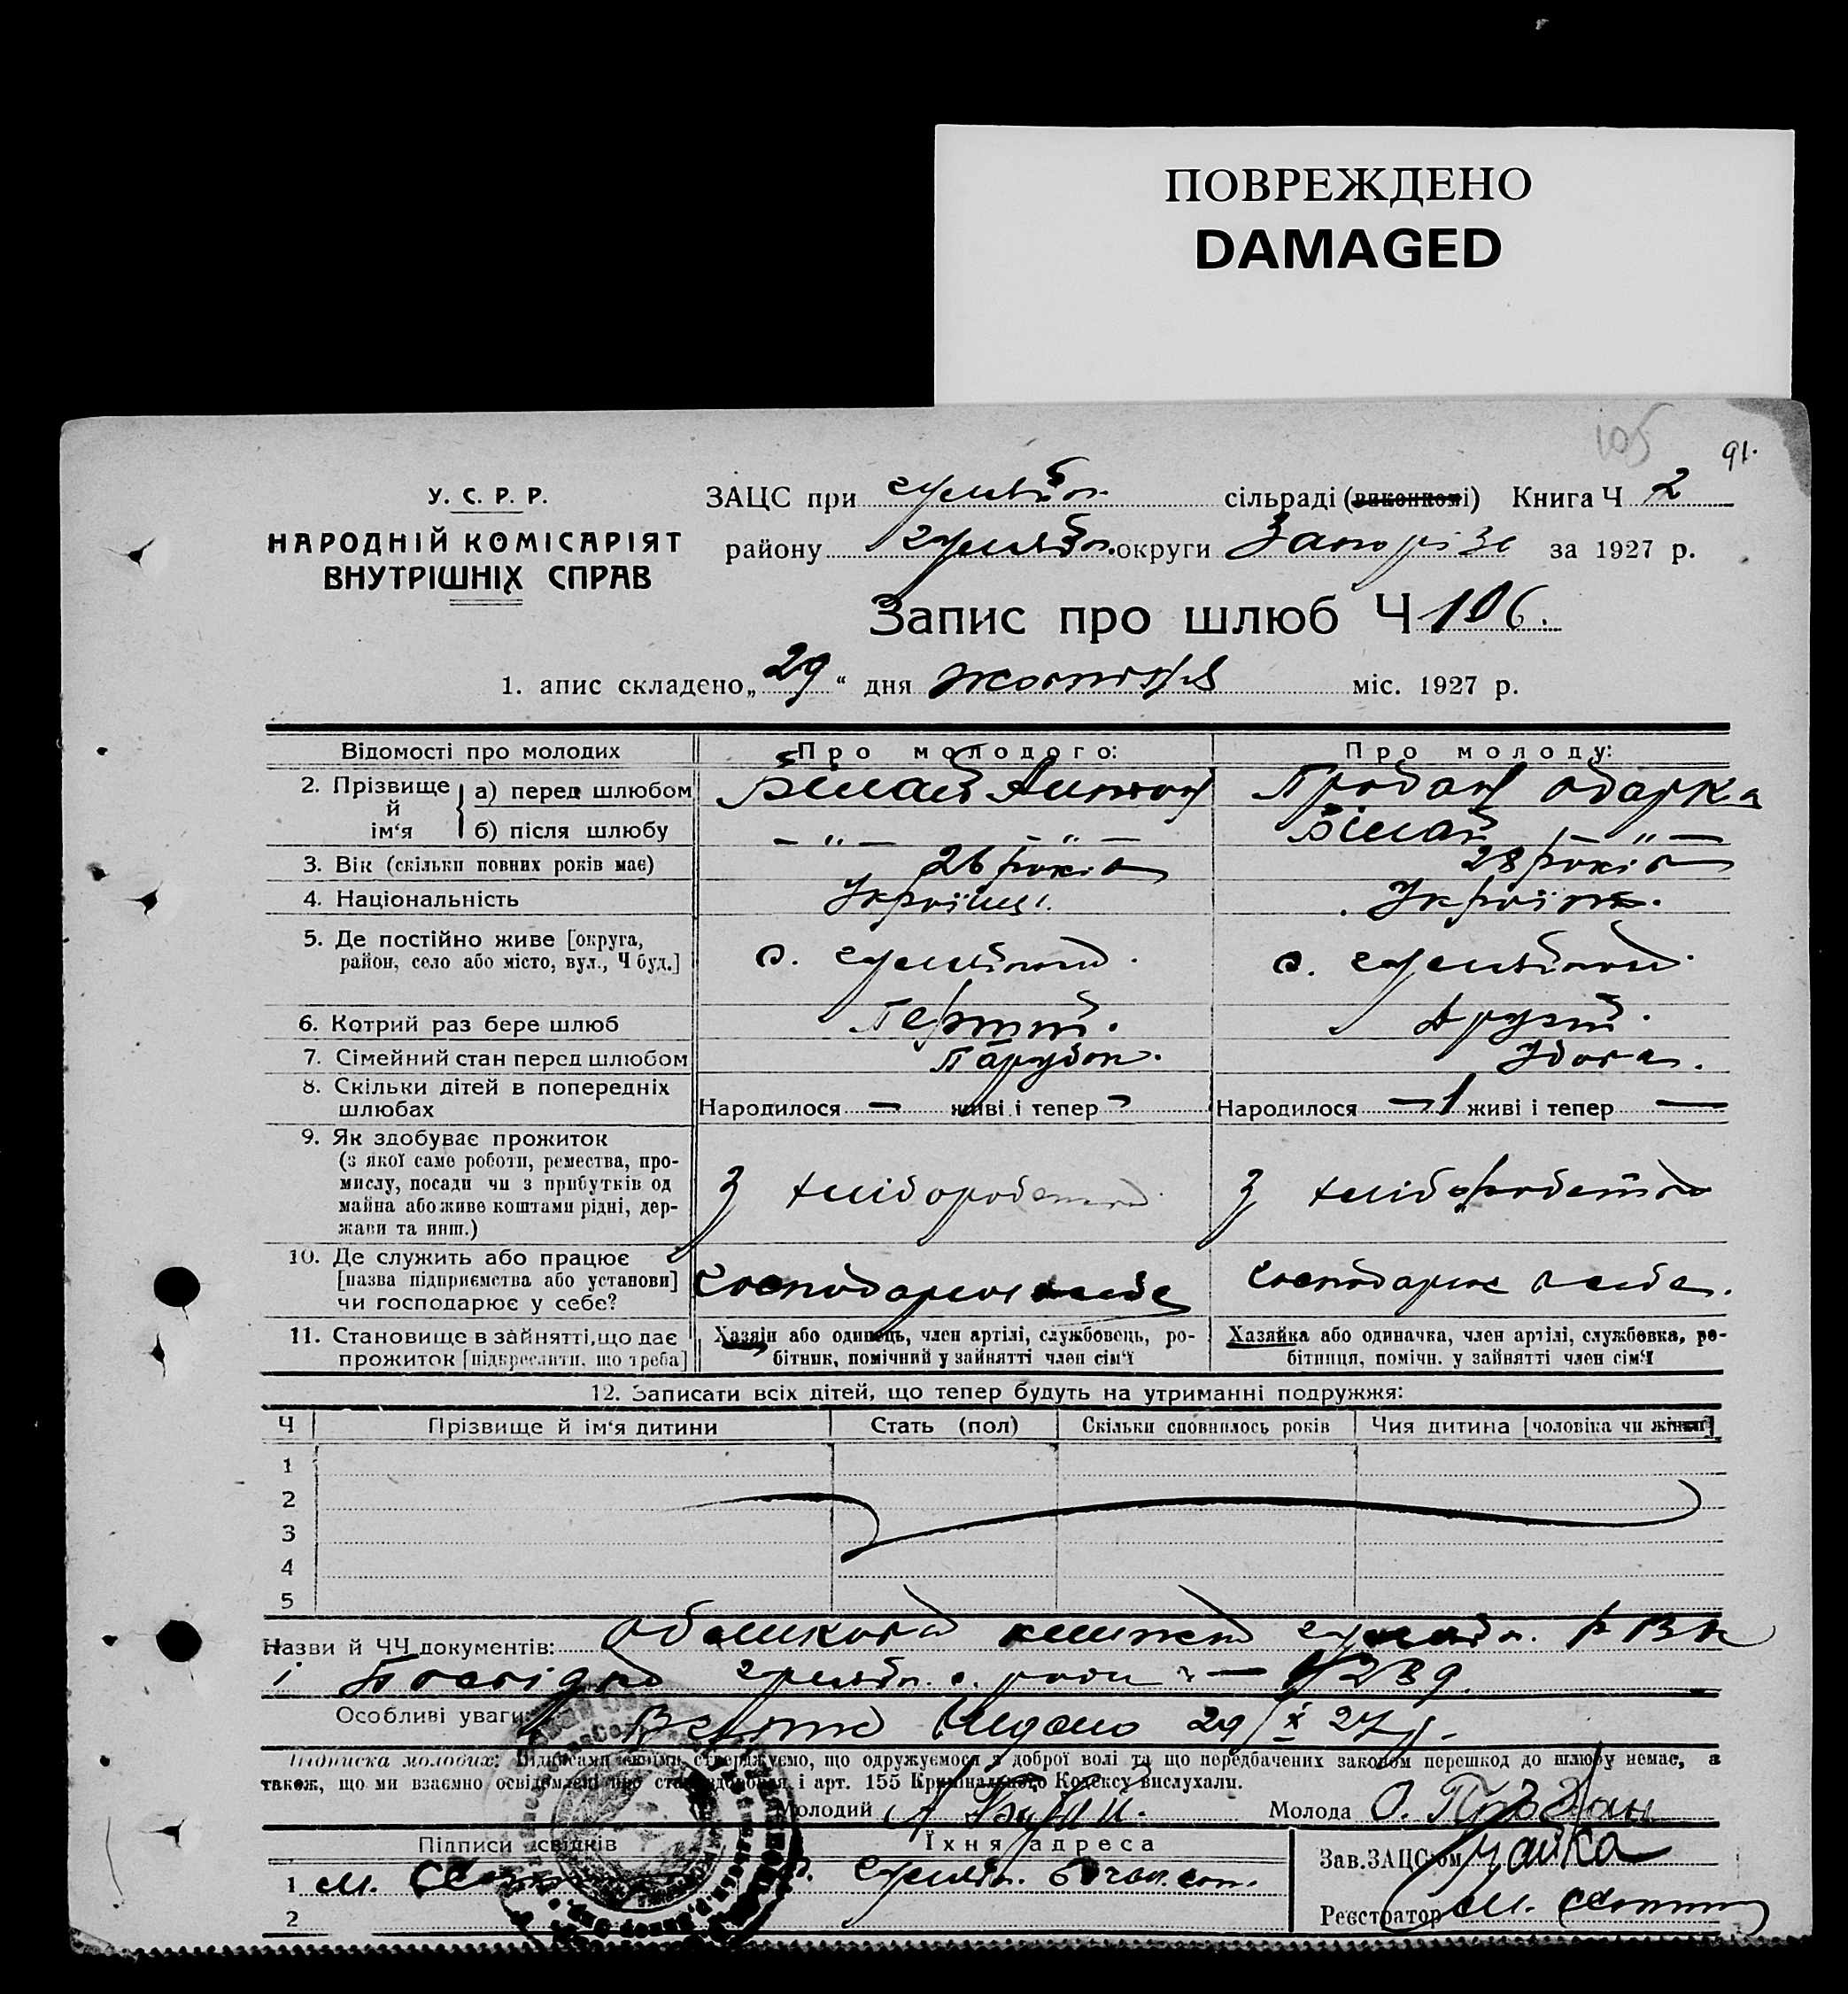 ПОВРЕЖДЕНО
DAMAGED
105
91.
У. С. Р. Р.
НАРОДНІЙ КОМІСАРІЯТ
ВНУТРІШНІХ СПРАВ
ЗАЦС при сільраді (виконкомі) Книга Ч 2
району округи Запоріз за 1927 р.
Запис про шлюб Ч 106.
1. апис складено „29“ дня жовтня міс. 1927 р.
Відомості про молодих Про молодого: Про молоду:
2. Прізвище й ім‘я а) перед шлюбом Білай Антон Продан Одарка
б) після шлюбу — „ — — „ — Білай — „ —
3. Вік (скільки повних років має) 26 років 28 років
4. Національність Україн.
5. Де постійно живе [округа, район, село або місто, вул., Ч буд.] с. с.
6. Котрий раз бере шлюб Перший. Другий.
7. Сімейний стан перед шлюбом Парубок. Удова.
8. Скільки дітей в попередніх шлюбах Народилося — живі і тепер — Народилося 1 живі і тепер —
9. Як здобуває прожиток
(з якої саме роботи, ремества, про-
мислу, посади чи з прибутків од
майна або живе коштами рідні, дер-
жави та инш.)
З хліборобства З хліборобства
10. Де служить або працює
[назва підприємства або установи]
чи господарює у себе?
Господарює в себе Господарює в себе.
11. Становище в зайнятті, що дає прожиток [підкреслити, що треба]
Хазяін або одинець, член артілі, службовець, ро-
бітник, помічний у зайнятті член сім‘ї
Хазяйка або одиначка, член артілі, службовка, ро-
бітниця, помічн. у зайнятті член сім‘ї
12. Записати всіх дітей, що тепер будуть на утриманні подружжя:
Ч Прізвище й ім‘я дитини Стать (пол) Скільки сповнилось років Чия дитина [чоловіка чи жінки]
1
2
3
4
5
Назви й ЧЧ документів: РВК
і
Особливі уваги: видано 29/X 27 р.
Підписка молодих: Підписами своїми стверджуємо, що одружуємося з доброї волі та що передбачених законом перешкод до шлюбу немає, а
також, що ми взаємно освідомлені про стан здоровля і арт. 155 Кримінального Кодексу вислухали.
Молодий А Білай. Молода О. Продан
Підписи свідків Їхня адреса
Зав.ЗАЦС‘ом
1 М.
Реєстратор М.
2